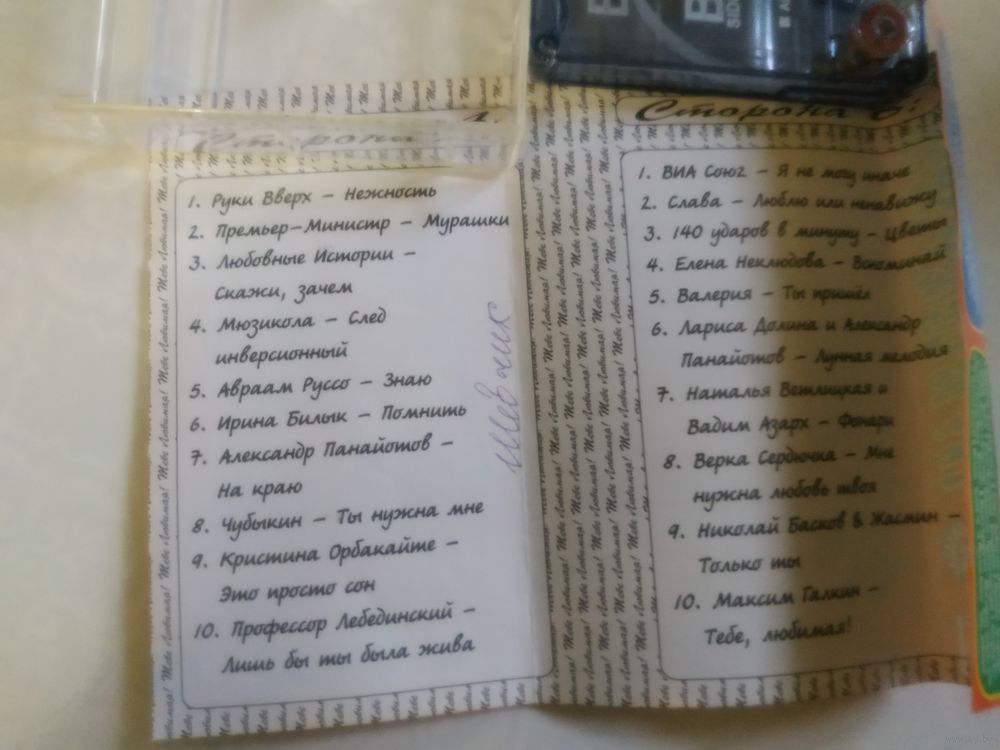 Сторона
1. Руки Вверх – Нежность
2. Премьер-Министр – Мурашки
3. Любовные Истории –
Скажи, зачем
4. Мюзикола – След
инверсионный
5. Авраам Руссо – Знаю
6. Ирина Билык – Помнить
7. Александр Панайотов –
На краю
8. Чубыкин – Ты нужна мне
9. Кристина Орбакайте –
Это просто сон
10. Профессор Лебединский –
Лишь бы ты была жива
Сторона
1. ВИА Союz – Я не могу иначе
2. Слава – Люблю или ненавижу
3. 140 ударов в минуту – Цветы
4. Елена Неклюдова – Вспоминай
5. Валерия – Ты пришёл
6. Лариса Долина и Александр
Панайотов – Лунная мелодия
7. Наталья Ветлицкая и
Вадим Азарх – Фонари
8. Верка Сердючка – Мне
нужна любовь твоя
9. Николай Басков & Жасмин –
Только ты
10. Максим Галкин –
Тебе, любимая!
Тебе Любимая!